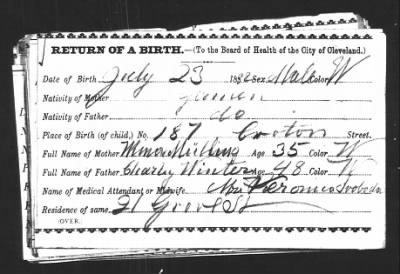 RETURN OF A BIRTH.—(To the Board of Health of the City of Cleveland.)
Date of Birth July 23 188 Sex Male Color W
Nativity of Mother German
Nativity of Father do
Place of Birth (of child,) No. 187 Croton Street.
Full Name of Mother Age 35 Color W
Full Name of Father Charley Winter Age 48 Color W
Name of Medical Attendant or Midwife Veronica Svoboda
Residence of same, 21 Grove St
(OVER.)